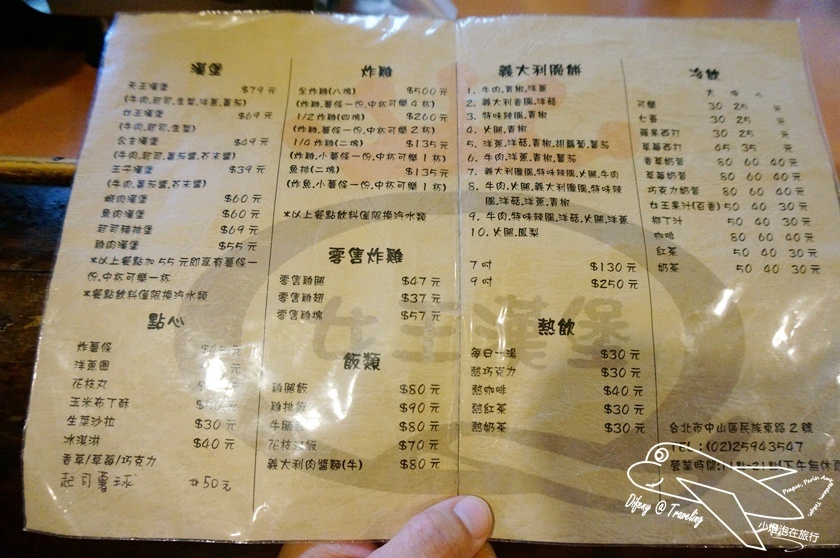 漢堡
天王漢堡 $79元
(牛肉.起司.生菜.洋蔥.蕃茄)
女王漢堡 $69元
(牛肉.起司.生菜)
公主漢堡 $49元
(牛肉.起司.蕃茄醬.芥末醬)
王子漢堡 $39元
(牛肉.蕃茄醬.芥末醬)
蝦肉漢堡 $60元
魚肉漢堡 $60元
起司豬排堡 $69元
雞肉漢堡 $55元
*以上餐點加55元即享有薯條一
份.中杯可樂一杯
*餐點飲料僅限換汽水類
點心
炸薯條
洋蔥圈
花枝丸
玉米布丁酥
生菜沙拉 $30元
冰淇淋 $40元
香草/草莓/巧克力
起司薯球 $50元
炸雞
全炸雞(八塊) $500元
(炸雞.薯條一份.中杯可樂4杯)
1/2炸雞(四塊) $260元
(炸雞.薯條一份.中杯可樂2杯)
1/4炸雞(二塊) $135元
(炸雞.小薯條一份.中杯可樂1杯)
魚排(二塊) $135元
(炸魚.小薯條一份.中杯可樂1杯)
*以上餐點飲料僅限換汽水類
零售炸雞
零售雞腿 $47元
零售雞翅 $37元
零售雞塊 $57元
飯類
雞腿飯 $80元
雞排飯 $90元
牛腩飯 $80元
花枝丸飯 $70元
義大利肉醬麵(牛) $80元
義大利脆餅
1. 牛肉.青椒.洋蔥
2. 義大利香腸.洋菇
3. 特味辣腸.青椒
4. 火腿.青椒
5. 洋蔥.洋菇.青椒.胡蘿蔔.蕃茄
6. 牛肉.洋蔥.青椒.蕃茄
7. 義大利臘腸.特味辣腸.火腿.牛肉
8. 牛肉.火腿.義大利臘腸.特味辣
腸.洋菇.洋蔥.青椒
9. 牛肉.特味辣腸.洋菇.火腿.洋蔥
10. 火腿.鳳梨
7吋 $130元
9吋 $250元
熱飲
每日一湯 $30元
熱巧克力 $30元
熱咖啡 $40元
熱紅茶 $30元
熱奶茶 $30元
冷飲
大 中 小
可樂 30 25 元
七喜 30 25 元
蘋果西打 30 25 元
草莓西打 45 35 元
香草奶昔 80 60 40元
草莓奶昔 80 60 40元
巧克力奶昔 80 60 40元
女王果汁(百香) 50 40 30元
柳丁汁 50 40 30元
咖啡 80 60 40元
紅茶 50 40 30元
奶茶 50 40 30元
台北市中山區民族東路2號
TEL:(02)25943547
營業時間:11點-21點(下午無休
女王漢堡
Difeny @ Traveling
小炮泡在旅行